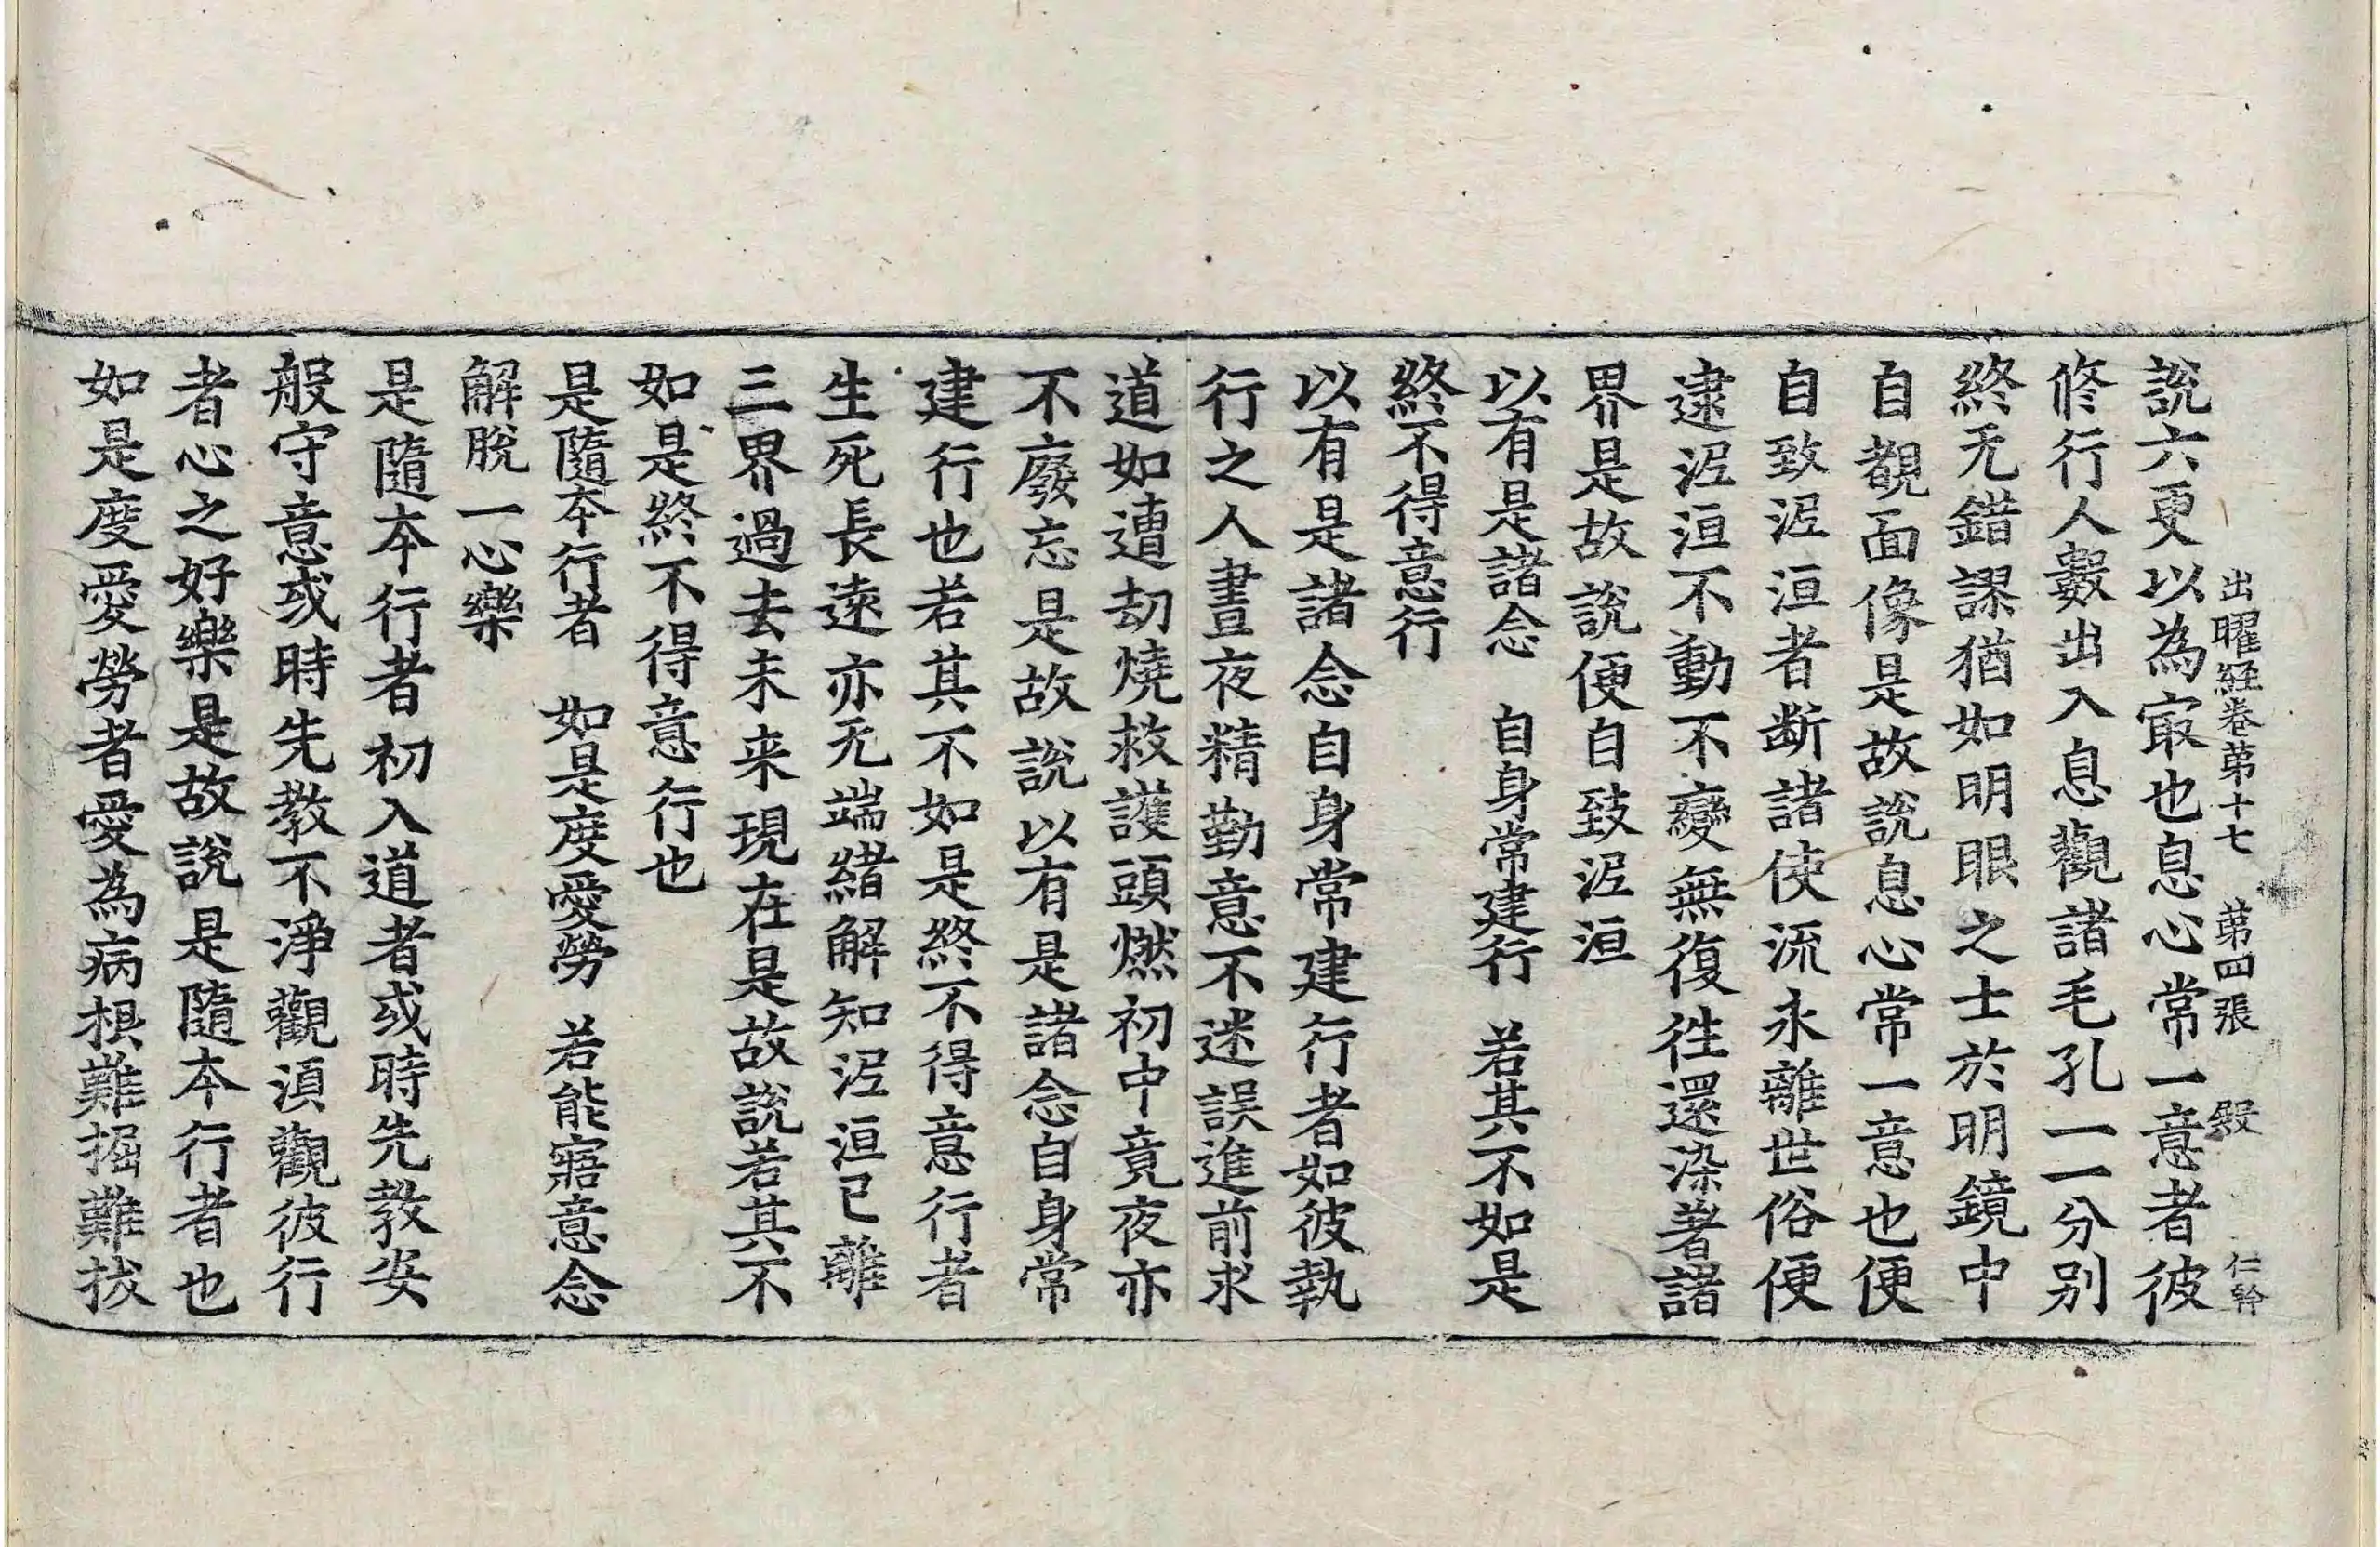 出曜經卷第十七　第四張　殿　仁幹
說六更以為㝡也息心常一意者彼
修行人數出入息觀諸毛孔一一分別
終无錯謬猶如明眼之士於明鏡中
自覩面像是故說息心常一意也便
自致泥洹者断諸使流永離世俗便
逮泥洹不動不變無復徃還染著諸
界是故說便自致泥洹
以有是諸念　自身常建行　若其不如是
終不得意行
以有是諸念自身常建行者如彼執
行之人晝夜精勤意不迷誤進前求
道如遭劫燒救護頭燃初中竟夜亦
不廢忘是故說以有是諸念自身常
建行也若其不如是終不得意行者
生死長遠亦无端緒解知泥洹已離
三界過去未来現在是故說若其不
如是終不得意行也
是隨本行者　如是度愛勞　若能寤意念
解脫一心樂
是隨本行者初入道者或時先教安
般守意或時先教不淨觀湏觀彼行
者心之好樂是故說是隨本行者也
如是度愛勞者愛為病根難掘難拔